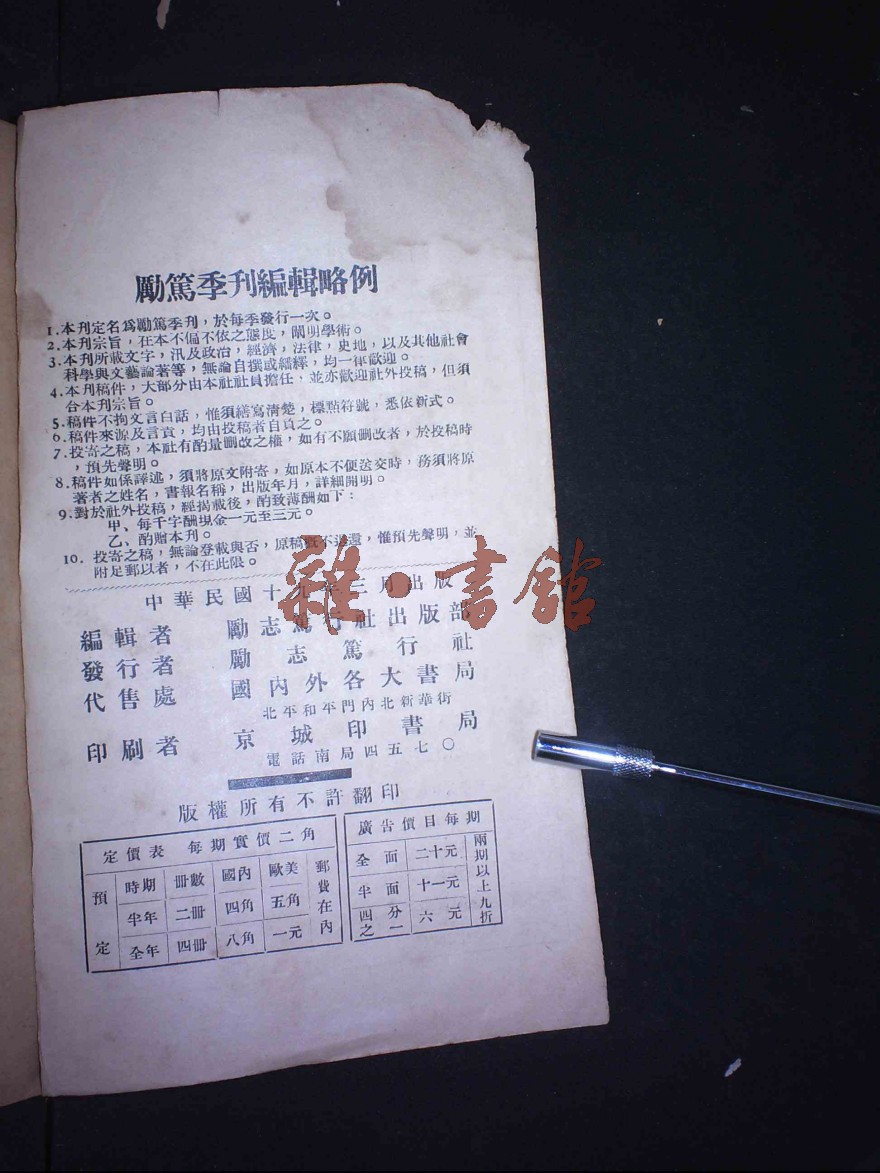 勵篤季刊編輯略例
1.本刊定名爲勵篤季刊，於每季發行一次。
2.本刊宗旨，在本不偏不依之態度，闡明學術。
3.本刊所載文字，汎及政治，經濟，法律，史地，以及其他社會
科學與文藝論著等，無論自撰或繙繹，均一律歡迎。
4.本刊稿件，大部分由本社社員擔任，並亦歡迎社外投稿，但須
合本刊宗旨。
5.稿件不拘文言白話，惟須繕寫清楚，標點符號，悉依新式。
6.稿件來源及言責，均由投稿者自負之。
7.投寄之稿，本社有酌量删改之權，如有不願删改者，於投稿時
，預先聲明。
8.稿件如係譯述，須將原文附寄，如原本不便送交時，務須將原
著者之姓名，書報名稱，出版年月，詳細開明。
9.對於社外投稿，經揭載後，酌致薄酬如下：
甲、每千字酬現金一元至三元。
乙、酌贈本刊。
10.投寄之稿，無論登載與否，原稿概不退還，惟預先聲明，並
附足郵以者，不在此限。
雜·書館
中華民國十九年三月出版
編輯者 勵志篤行社出版部
發行者 勵志篤行社
代售處 國內外各大書局
北平和平門內北新華街
印刷者 京城印書局
電話南局四五七〇
版權所有不許翻印
定價表 每期實價二角
預定 時期 冊數 國內 歐美 郵費在內
半年 二冊 四角 五角
全年 四冊 八角 一元
廣告價目每期
全面 二十元 兩期以上九折
半面 十一元
四分之一 六元